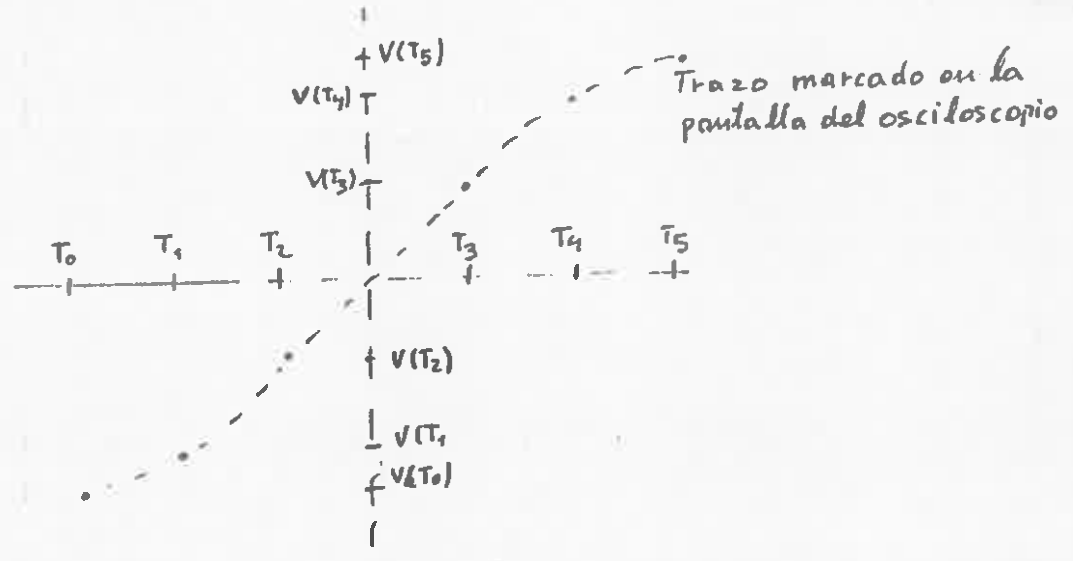 V(T5)
V(T4)
Trazo marcado en la
pantalla del osciloscopio
V(T3)
T0 T1 T2 T3 T4 T5
V(T2)
V(T1
V(T0)